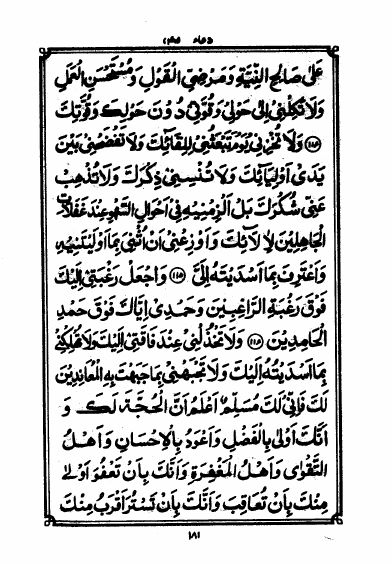 دعاء نهم
عَلىٰ صَالِحِ النِّيَّةِ وَمَرْضِيِّ الْقَوْلِ وَمُسْتَحْسَنِ الْعَمَلِ
وَلَا تَكِلْنِيْ اِلىٰ حَوْلِيْ وَقُوَّتِيْ دُوْنَ حَوْلِكَ وَقُوَّتِكَ
وَلَا تُخْزِنِيْ يَوْمَ تَبْعَثُنِيْ لِلِقَائِكَ وَلَا تَفْضَحْنِيْ بَيْنَ
يَدَيْ اَوْلِيَائِكَ وَلَا تُنْسِنِيْ ذِكْرَكَ وَلَا تُذْهِبْ
عَنِّيْ شُكْرَكَ بَلْ اَلْزِمْنِيْهِ فِيْ اَحْوَالِ السَّهْوِ عِنْدَ غَفَلَاتِ
الْجَاهِلِيْنَ لِاٰلَائِكَ وَاَوْزِعْنِيْ اَنْ اُثْنِيَ بِمَا اَوْلَيْتَنِيْهِ
وَاَعْتَرِفَ بِمَا اَسْدَيْتَهٗ اِلَيَّ ﴿۱۱۵﴾ وَاجْعَلْ رَغْبَتِيْ اِلَيْكَ
فَوْقَ رَغْبَةِ الرَّاغِبِيْنَ وَحَمْدِيْ اِيَّاكَ فَوْقَ حَمْدِ
الْحَامِدِيْنَ وَلَا تَخْذُلْنِيْ عِنْدَ فَاقَتِيْ اِلَيْكَ وَلَا تُهْلِكْنِيْ
بِمَا اَسْدَيْتُهٗ اِلَيْكَ وَلَا تَجْبَهْنِيْ بِمَا جَبَهْتَ بِهِ الْمُعَانِدِيْنَ
لَكَ فَاِنِّيْ لَكَ مُسَلِّمٌ اَعْلَمُ اَنَّ الْحُجَّةَ لَكَ وَ
اَنَّكَ اَوْلىٰ بِالْفَضْلِ وَاَعْوَدُ بِالْاِحْسَانِ وَاَهْلُ
التَّقْوٰى وَاَهْلُ الْمَغْفِرَةِ وَاَنَّكَ بِاَنْ تَعْفُوَ اَوْلىٰ
مِنْكَ بِاَنْ تُعَاقِبَ وَاَنَّكَ بِاَنْ تَسْتُرَ اَقْرَبُ مِنْكَ
۱۸۱